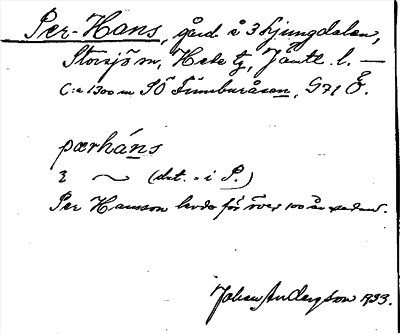 Per-Hans, gård i Ljungdalen,
Storsjö sn, Hede tg, Jämtl. l. —
C:a 1300 m SÖ Tümburåsen, 571 Ö.
pærháns
ꝫ ~ (det. = i P.)
Per Hansson levde för över 100 år sedan.
Johan Anderson 1933.